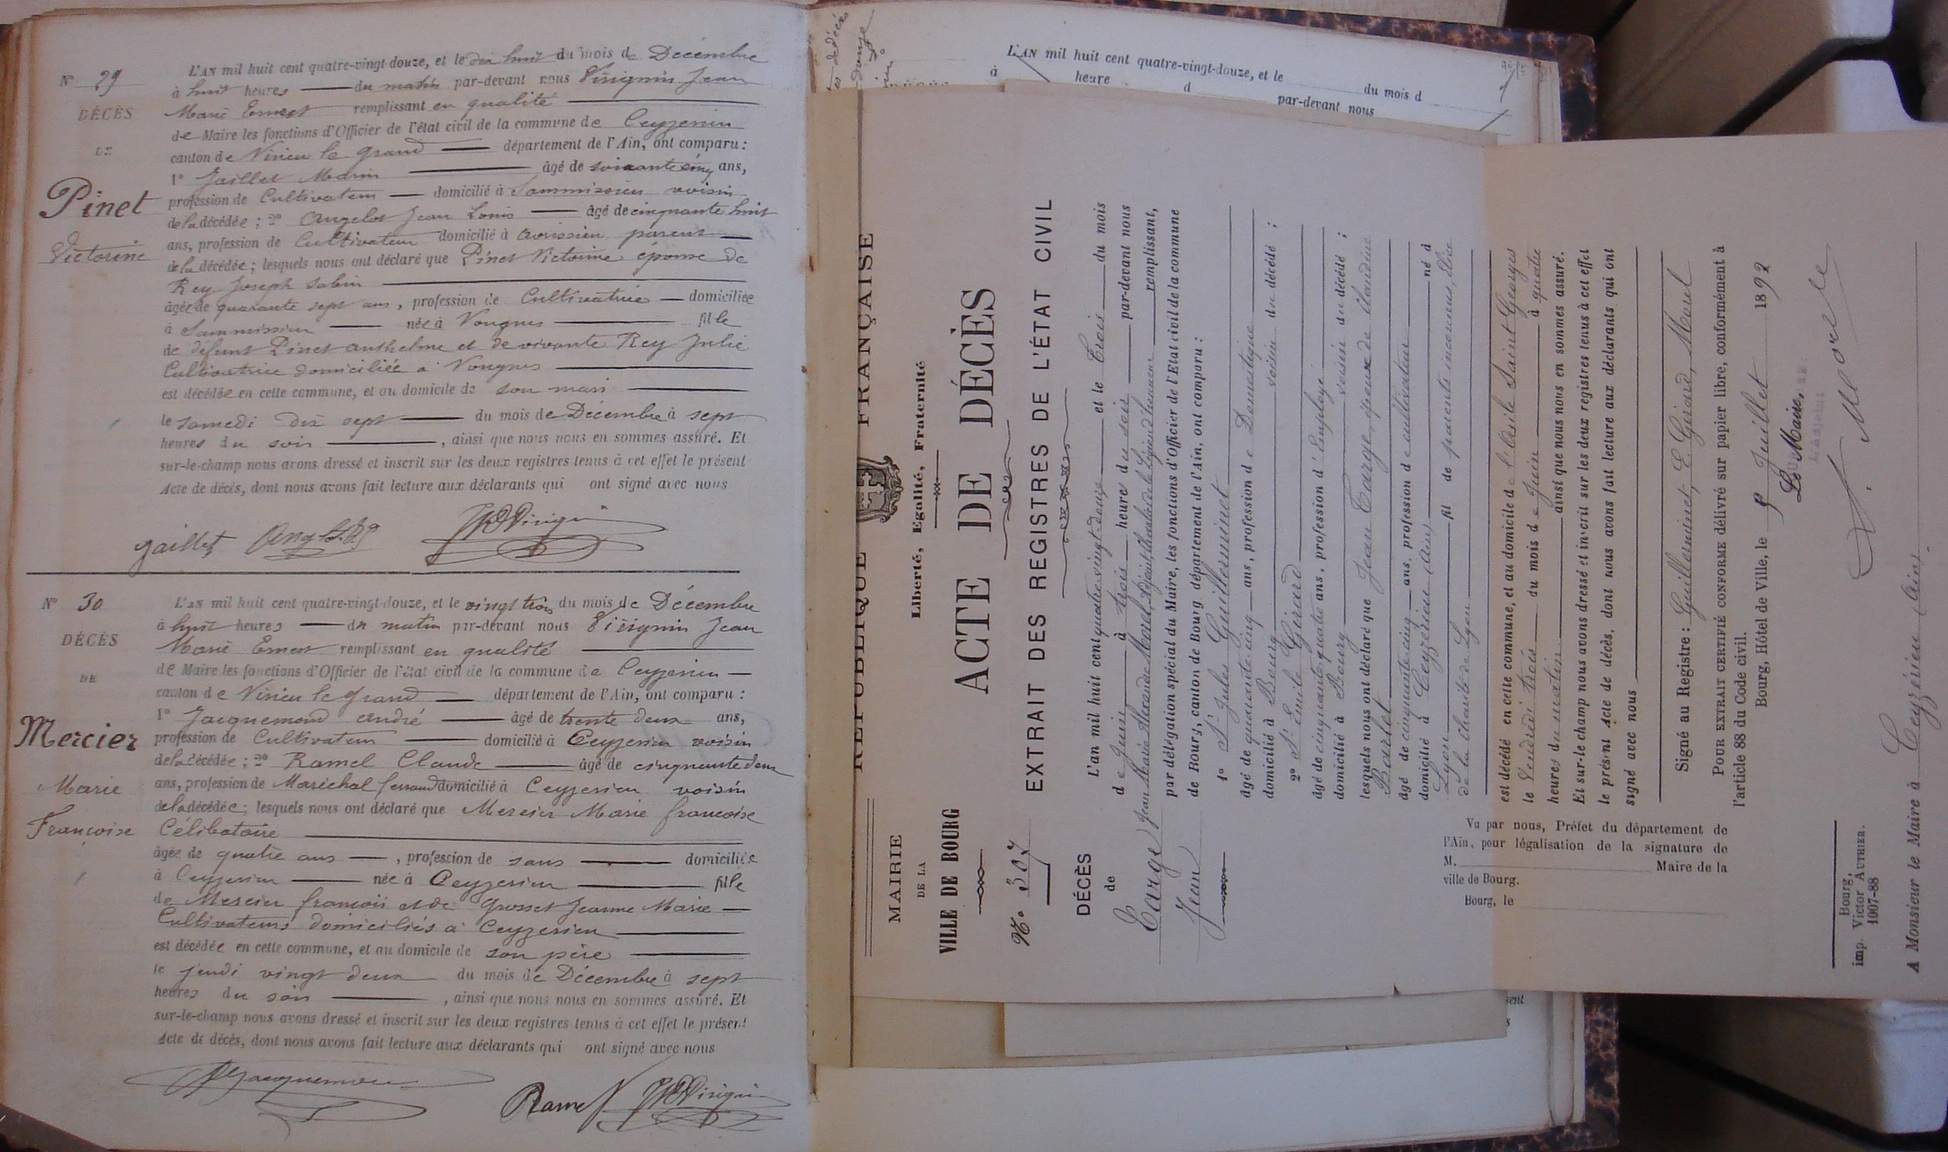 N° 29
DÉCÈS
DE
Pinet
Victorine
L'AN mil huit cent quatre-vingt-douze, et le dix huit du mois de Décembre
à huit heures du matin par-devant nous Virignin Jean
Marie Ernest remplissant en qualité
de Maire les fonctions d'Officier de l'état civil de la commune de Ceyzerieu
canton de Virieu le grand département de l'Ain, ont comparu :
1° Jaillet Marin âgé de soixante cinq ans,
profession de Cultivateur domicilié à Sammissieu voisin
de la décédée ; 2° Angelot Jean Louis âgé de cinquante huit
ans, profession de Cultivateur domicilié à Avrissieu parent
de la décédée ; lesquels nous ont déclaré que Pinet Victorine épouse de
Rey Joseph Sabin
âgée de quarante sept ans, profession de Cultivatrice domiciliée
à Sammissieu née à Vongnes fille
de défunt Pinet Anthelme et de vivante Rey Julie
Cultivatrice domiciliée à Vongnes
est décédée en cette commune, et au domicile de son mari
le samedi dix sept du mois de Décembre à sept
heures du soir, ainsi que nous nous en sommes assuré. Et
sur-le-champ nous avons dressé et inscrit sur les deux registres tenus à cet effet le présent
Acte de décès, dont nous avons fait lecture aux déclarants qui ont signé avec nous
Jaillet Virignin
N° 30
DÉCÈS
DE
Mercier
Marie
Françoise
L'AN mil huit cent quatre-vingt-douze, et le vingt trois du mois de Décembre
à huit heures du matin par-devant nous Virignin Jean
Marie Ernest remplissant en qualité
de Maire les fonctions d'Officier de l'état civil de la commune de Ceyzerieu
canton de Virieu le grand département de l'Ain, ont comparu :
1° Jacquemond André âgé de trente deux ans,
profession de Cultivateur domicilié à Ceyzerieu voisin
de la décédée ; 2° Ramel Claude âgé de cinquante deux
ans, profession de Maréchal ferrand domicilié à Ceyzerieu voisin
de la décédée ; lesquels nous ont déclaré que Mercier Marie françoise
Célibataire
âgée de quatre ans, profession de sans domiciliée
à Ceyzerieu née à Ceyzerieu fille
de Mercier françois et de Grosset Jeanne Marie
Cultivateurs domiciliés à Ceyzerieu
est décédée en cette commune, et au domicile de son père
le jeudi vingt deux du mois de Décembre à sept
heures du soir, ainsi que nous nous en sommes assuré. Et
sur-le-champ nous avons dressé et inscrit sur les deux registres tenus à cet effet le présent
Acte de décès, dont nous avons fait lecture aux déclarants qui ont signé avec nous
Jacquemond
Ramel Virignin
L'AN mil huit cent quatre-vingt-douze, et le du mois d
à heure d par-devant nous
RÉPUBLIQUE FRANÇAISE
Liberté, Egalité, Fraternité
MAIRIE
DE LA
VILLE DE BOURG
N° 307
DÉCÈS
de
Carge
Jean
ACTE DE DÉCÈS
EXTRAIT DES REGISTRES DE L'ÉTAT CIVIL
L'an mil huit cent quatre-vingt-douze et le trois du mois
de Juin à trois heures du soir par-devant nous
Jean Marie Alexandre Morel, Adjoint, Chevalier de la Légion d'honneur remplissant,
par délégation spécial du Maire, les fonctions d'Officier de l'Etat civil de la commune
de Bourg, canton de Bourg, département de l'Ain, ont comparu :
1° Sr Jules Guillerminet
âgé de quarante cinq ans, profession de Domestique
domicilié à Bourg voisin du décédé ;
2° Sr Emile Girard
âgé de cinquante quatre ans, profession d'Employé
domicilié à Bourg voisin du décédé ;
lesquels nous ont déclaré que Jean Carge, époux de Claudine
Bartlet
âgé de cinquante cinq ans, profession de cultivateur
domicilié à Ceyzérieu (Ain) né à
Lyon fil de parents inconnus, élève
de la charité de Lyon
est décédé en cette commune, et au domicile de l'Asile Saint Georges
le Vendredi trois du mois de Juin à quatre
heures du matin ainsi que nous nous en sommes assuré.
Et sur-le-champ nous avons dressé et inscrit sur les deux registres tenus à cet effet
le présent Acte de décès, dont nous avons fait lecture aux déclarants qui ont
signé avec nous
Signé au Registre : Guillerminet, E. Girard, Morel
POUR EXTRAIT CERTIFIÉ CONFORME délivré sur papier libre, conformément à
l'article 88 du Code civil.
Bourg, Hôtel de Ville, le 8 Juillet 1892
Le Maire,
L'Adjoint
Vu par nous, Préfet du département de
l'Ain, pour légalisation de la signature de
M. Maire de la
ville de Bourg.
Bourg, le
Bourg,
imp. Victor AUTHIER.
1007-88
A Monsieur le Maire à Ceyzérieu (Ain)